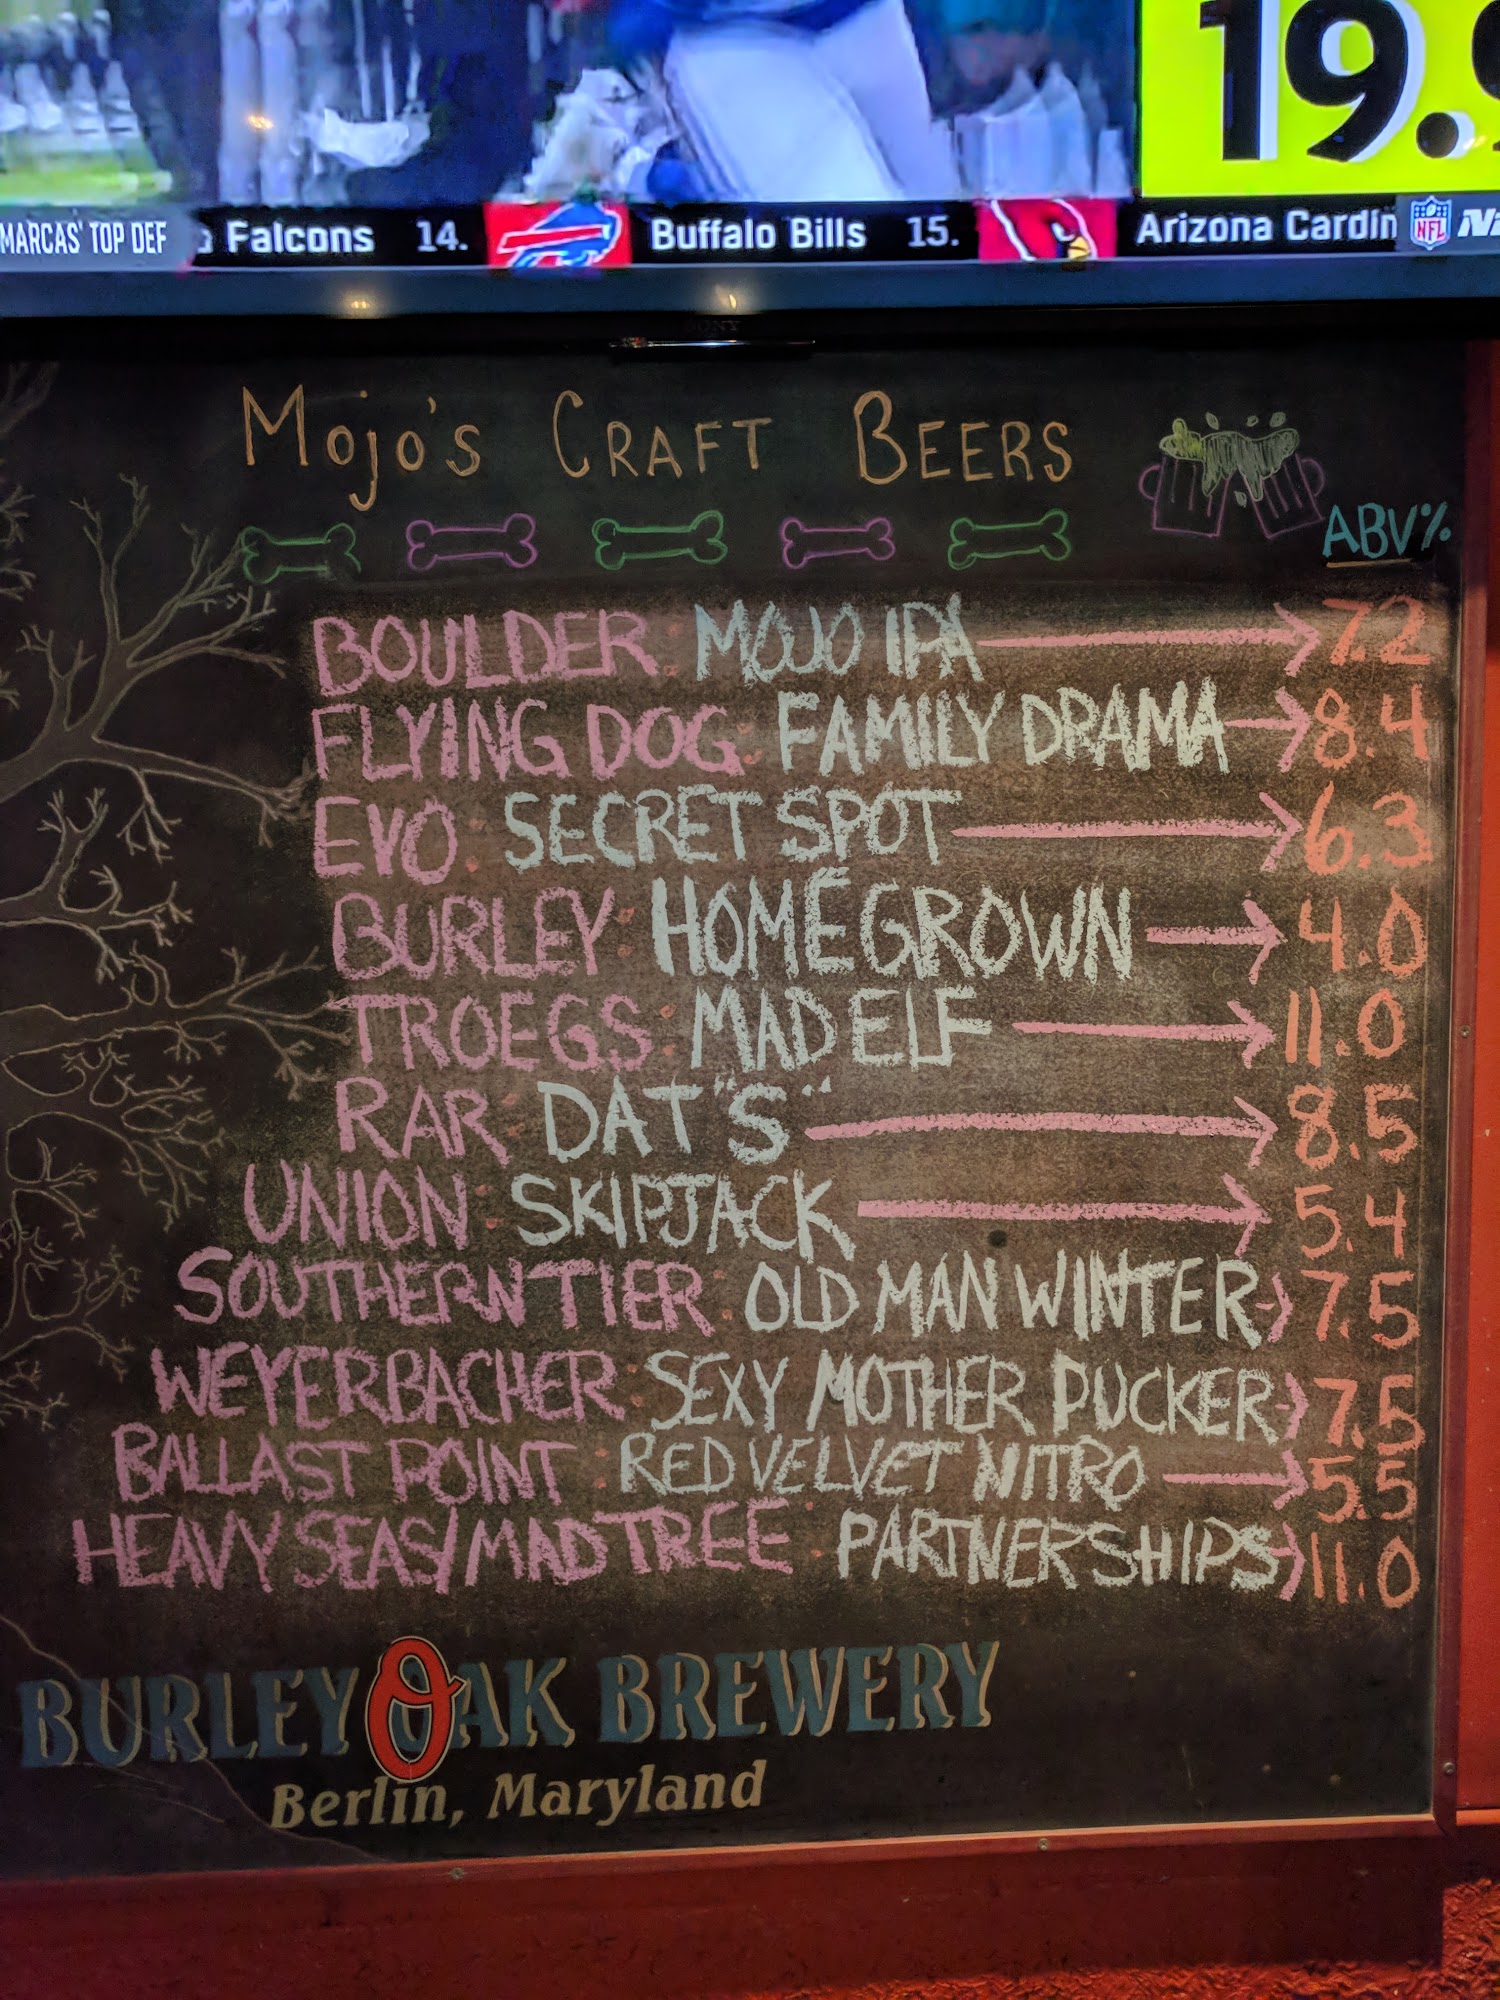 19.9
MARCAS' TOP DEF Falcons 14. Buffalo Bills 15. Arizona Cardin NFL
SONY
Mojo's CRAFT BEERS
ABV%
BOULDER: MOJO IPA 7.2
FLYING DOG: FAMILY DRAMA 8.4
EVO: SECRET SPOT 6.3
BURLEY: HOMEGROWN 4.0
TROEGS: MAD ELF 11.0
RAR: DAT "S" 8.5
UNION: SKIPJACK 5.4
SOUTHERN TIER: OLD MAN WINTER 7.5
WEYERBACHER: SEXY MOTHER PUCKER 7.5
BALLAST POINT: RED VELVET NITRO 5.5
HEAVY SEAS/MADTREE: PARTNERSHIPS 11.0
BURLEY OAK BREWERY
Berlin, Maryland